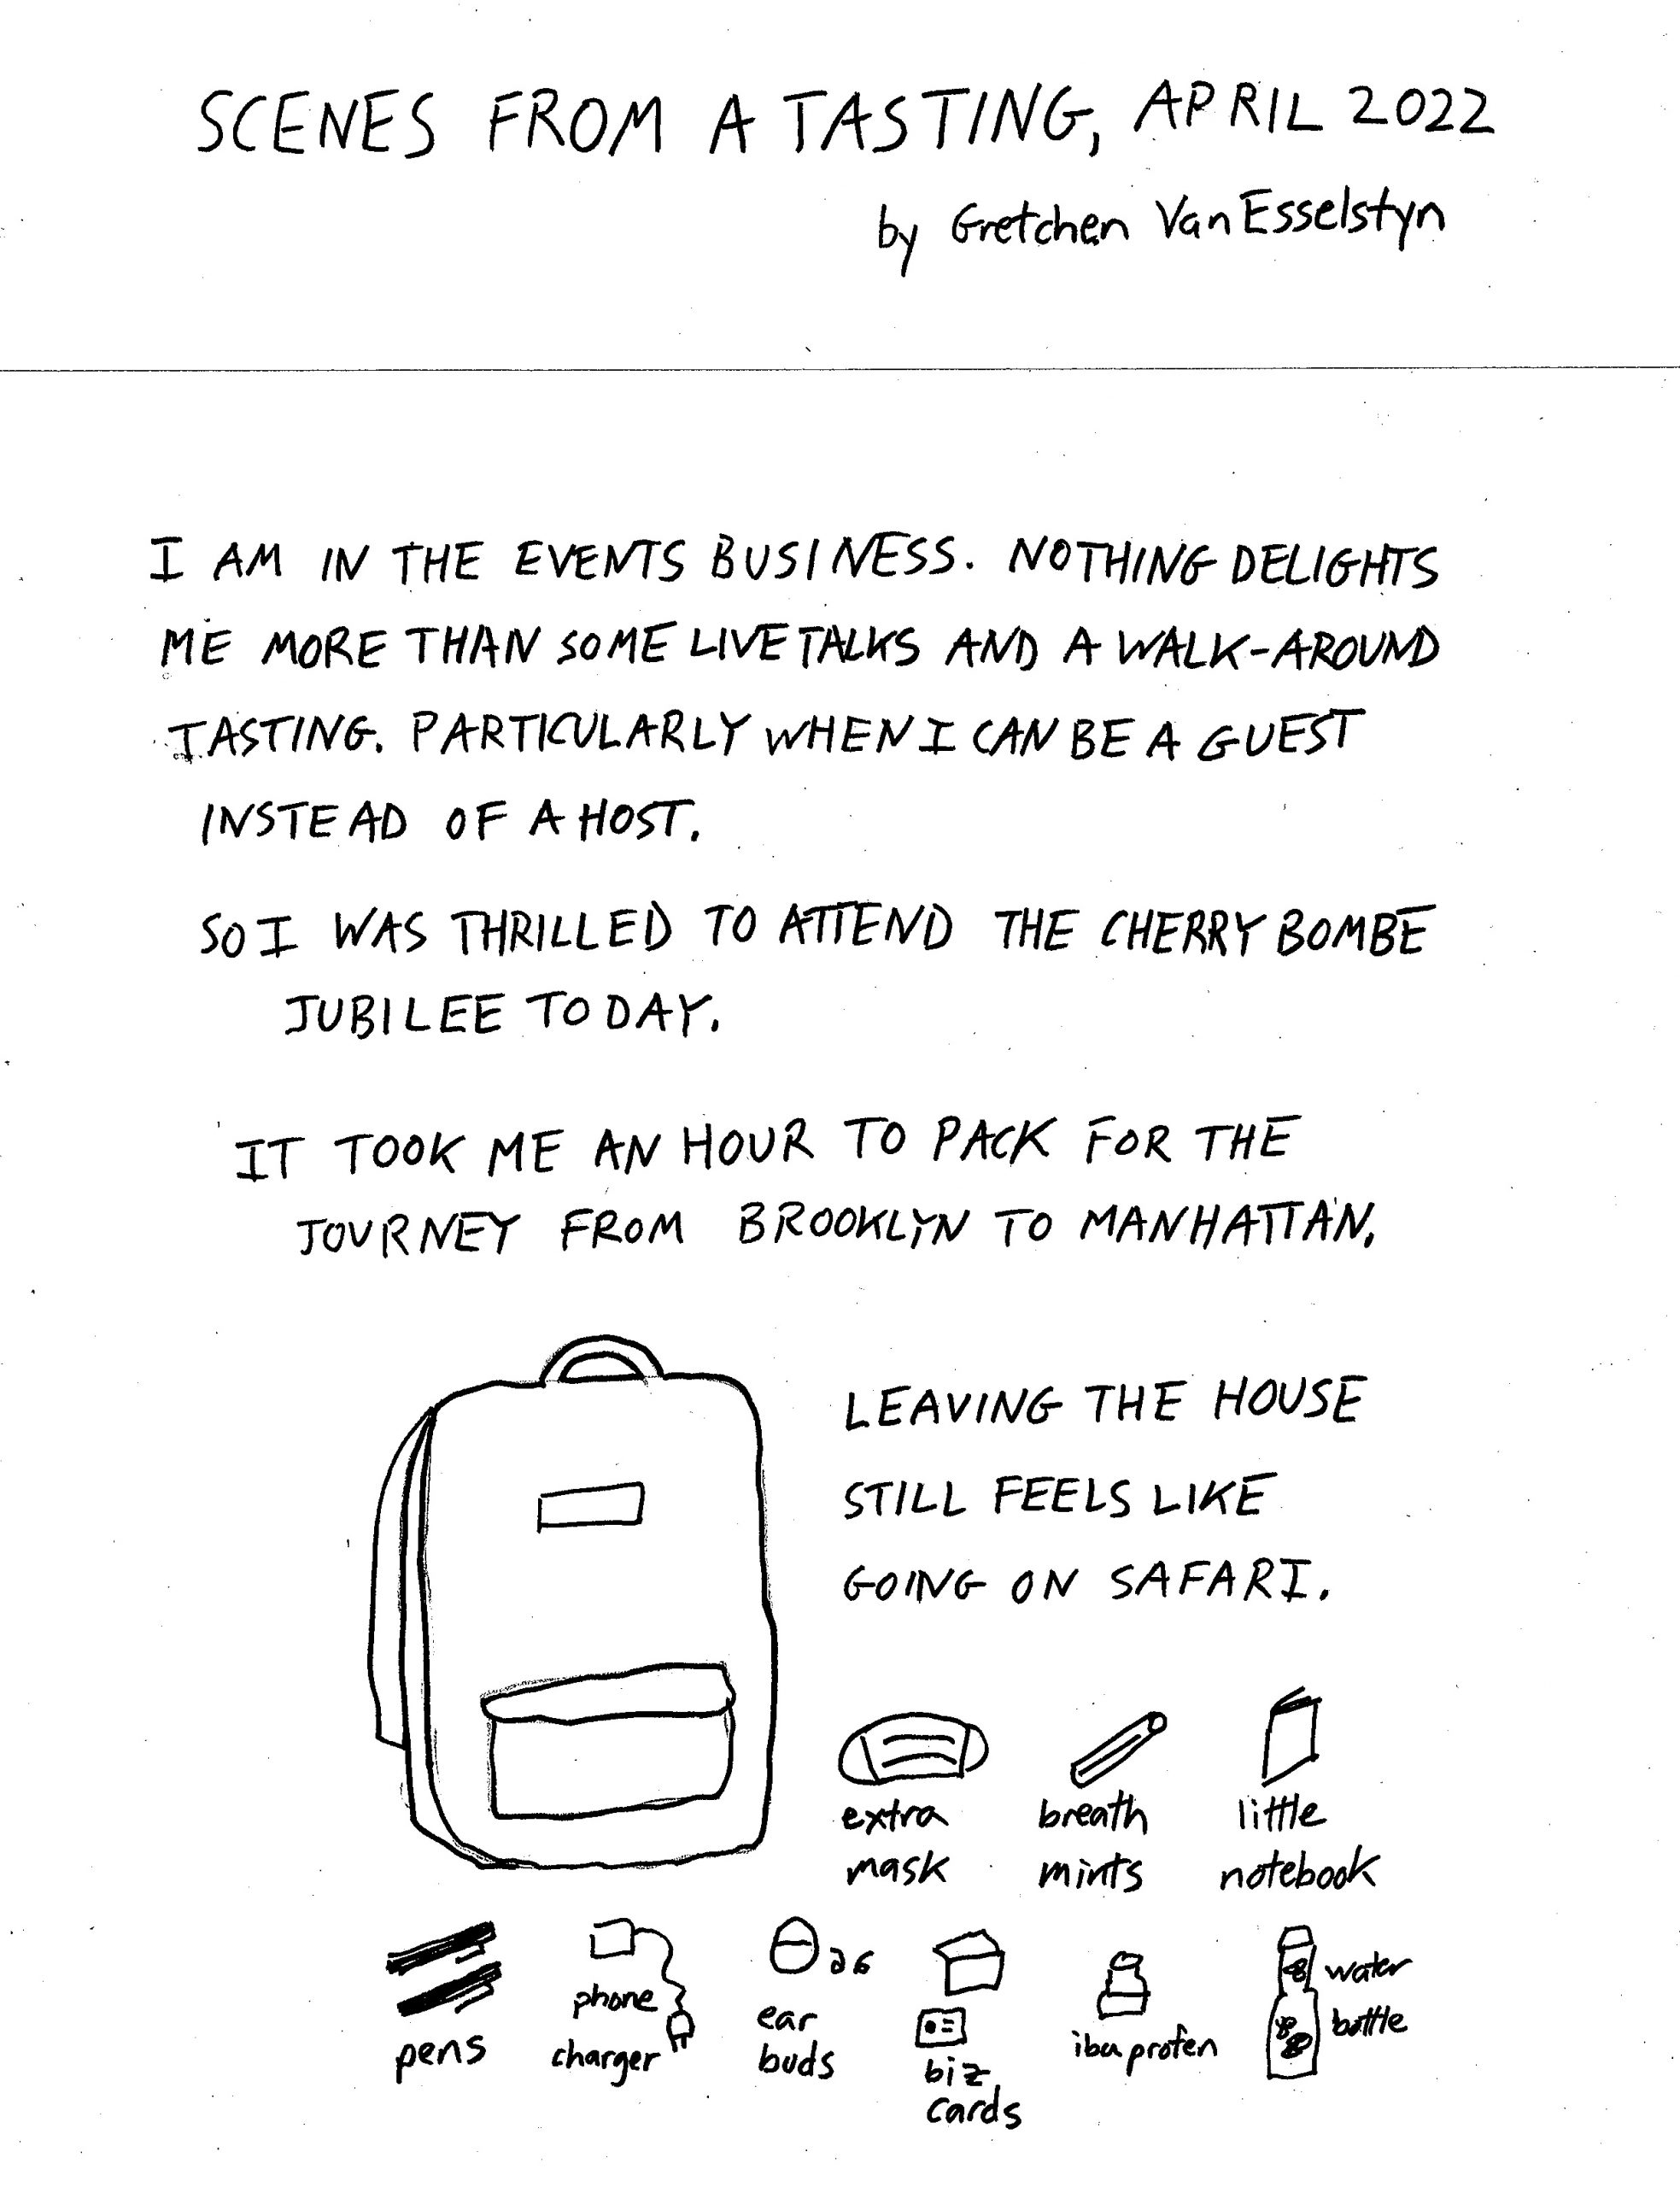 SCENES FROM A TASTING, APRIL 2022
by Gretchen VanEsselstyn
I AM IN THE EVENTS BUSINESS. NOTHING DELIGHTS
ME MORE THAN SOME LIVE TALKS AND A WALK-AROUND
TASTING. PARTICULARLY WHEN I CAN BE A GUEST
INSTEAD OF A HOST.
SO I WAS THRILLED TO ATTEND THE CHERRY BOMBE
JUBILEE TODAY.
IT TOOK ME AN HOUR TO PACK FOR THE
JOURNEY FROM BROOKLYN TO MANHATTAN.
LEAVING THE HOUSE
STILL FEELS LIKE
GOING ON SAFARI.
extra
mask
breath
mints
little
notebook
pens
phone
charger
ear
buds
biz
cards
ibuprofen
water
bottle